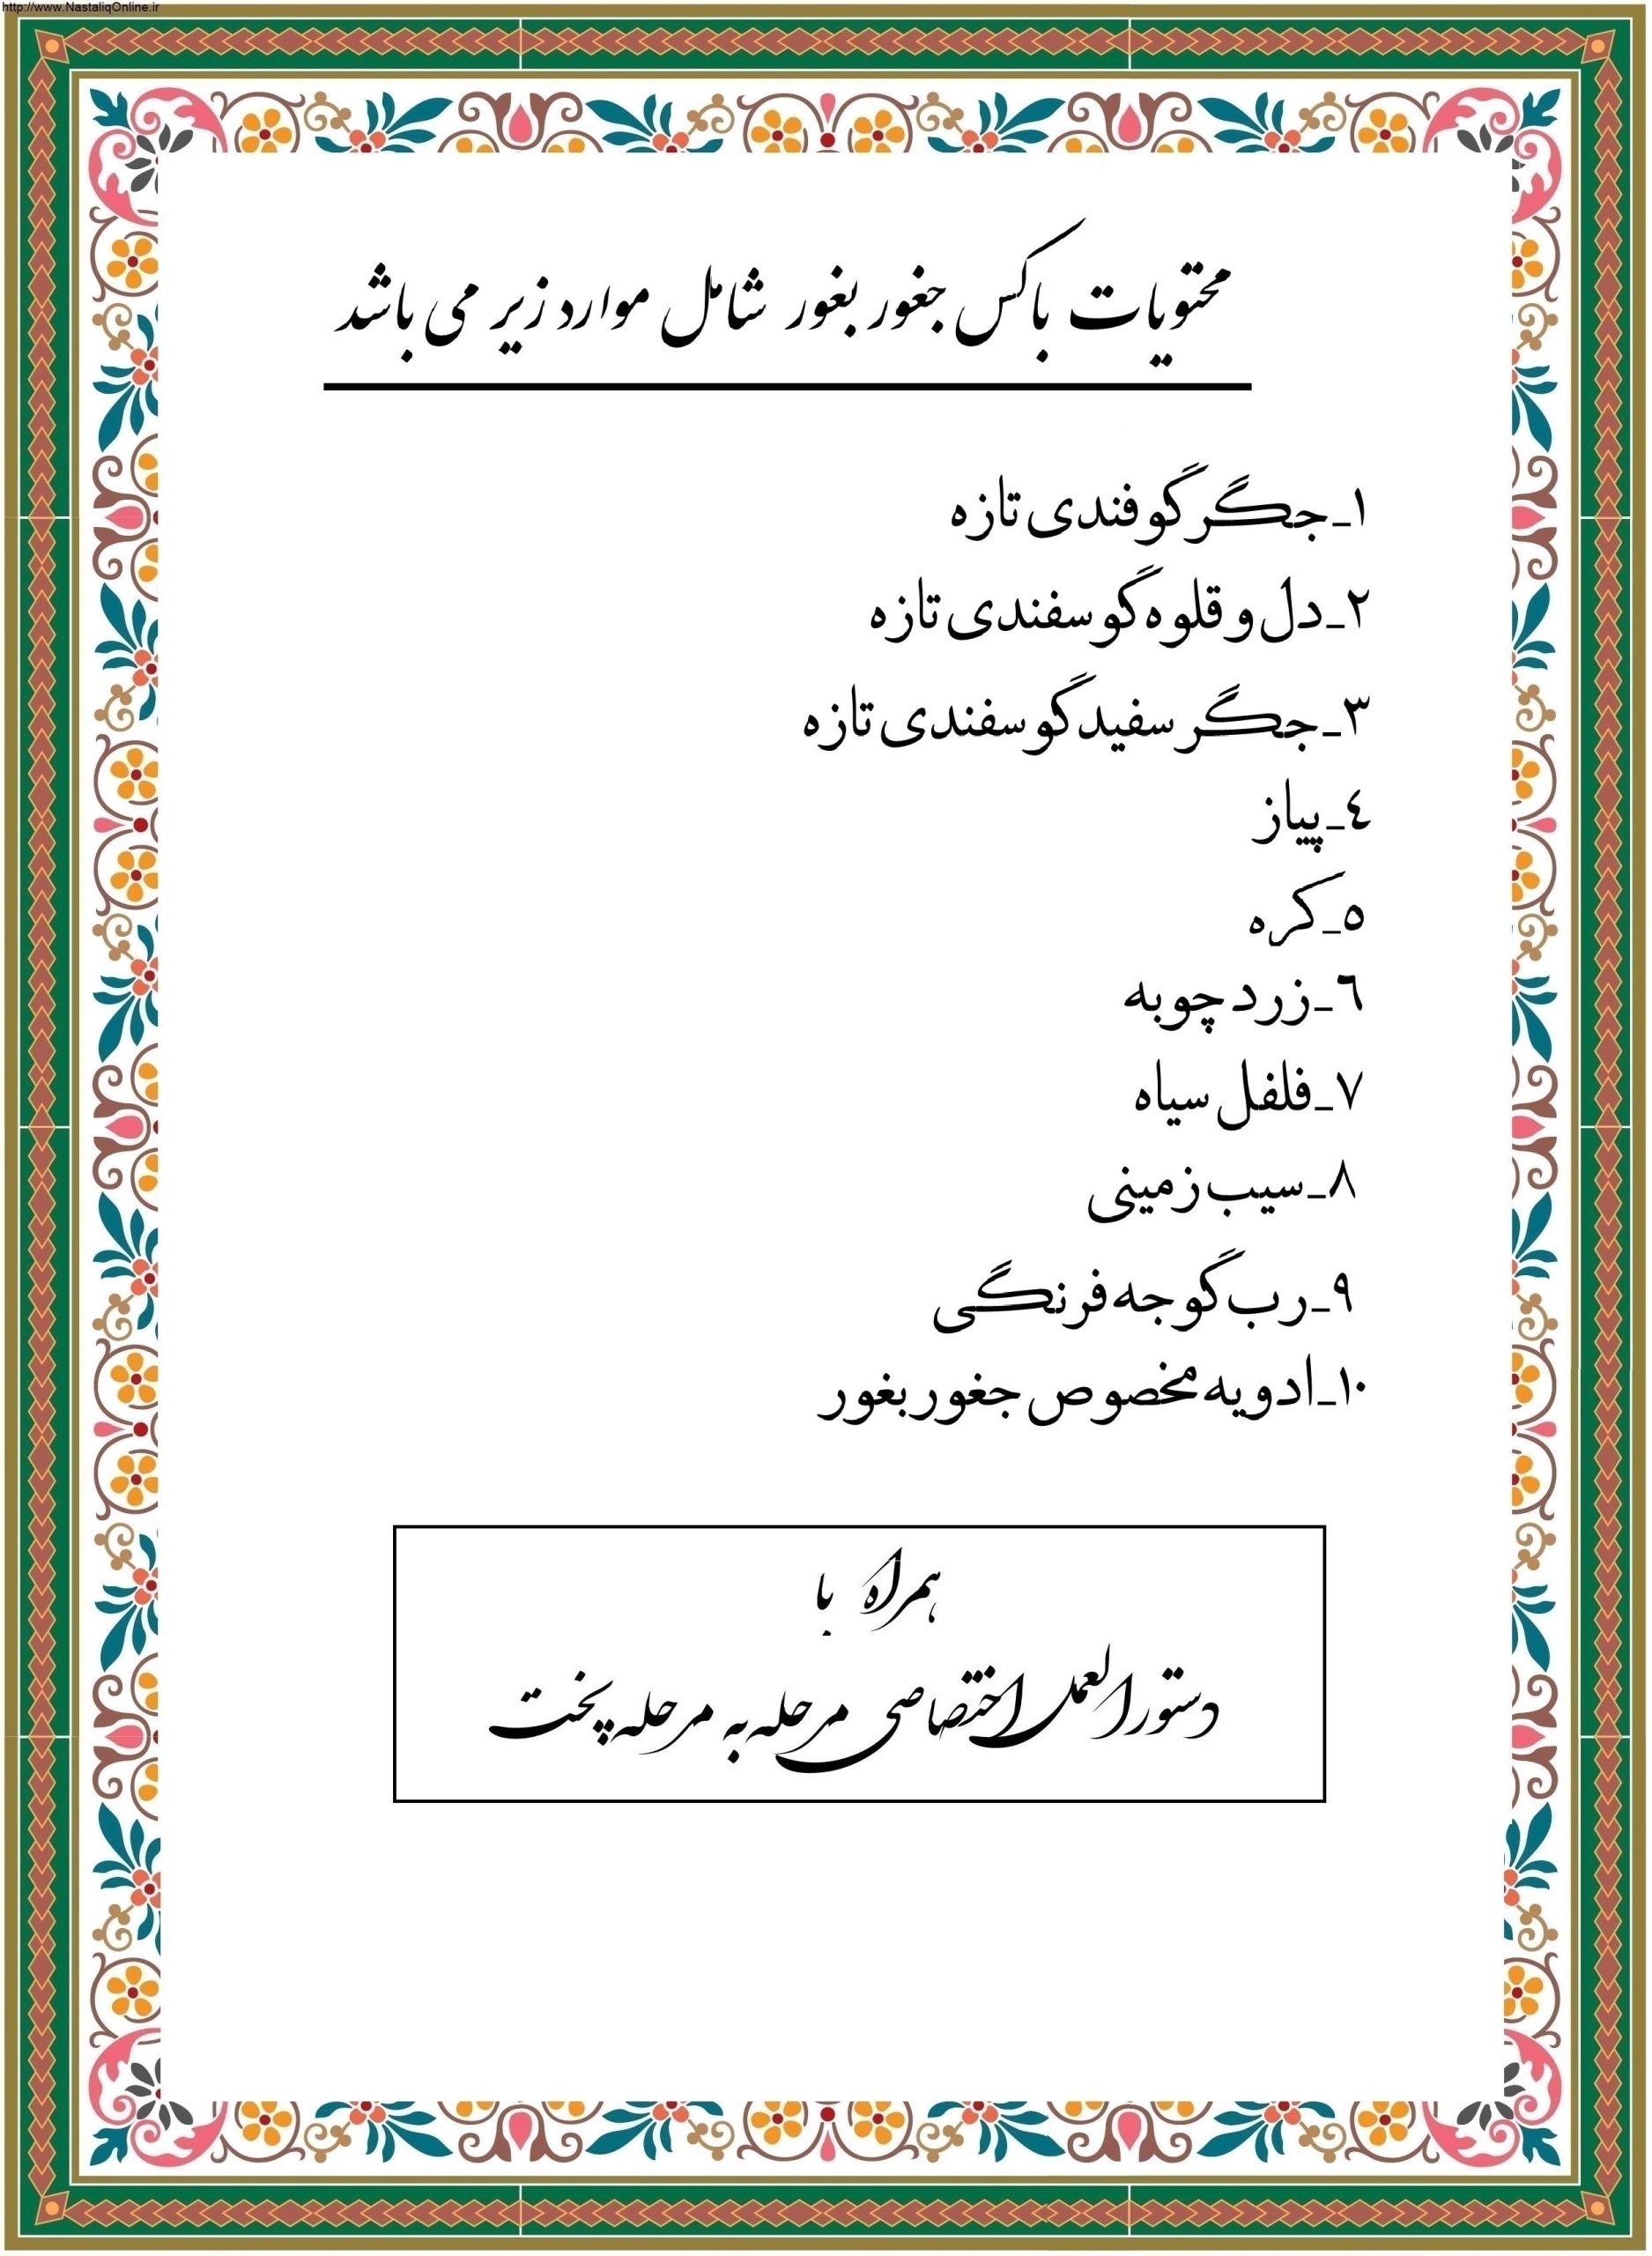 http://www.NastaliqOnline.ir
محتویات باکس جغور بغور شامل موارد زیر می باشد
۱_جگر گوفندی تازه
۲_دل و قلوه گوسفندی تازه
۳_جگر سفید گوسفندی تازه
٤_پیاز
٥_کره
٦_زردچوبه
۷_فلفل سیاه
۸_سیب زمینی
۹_رب گوجه فرنگی
۱۰_ادویه مخصوص جغور بغور
همراه با
دستورالعمل اختصاصی مرحله به مرحله پخت